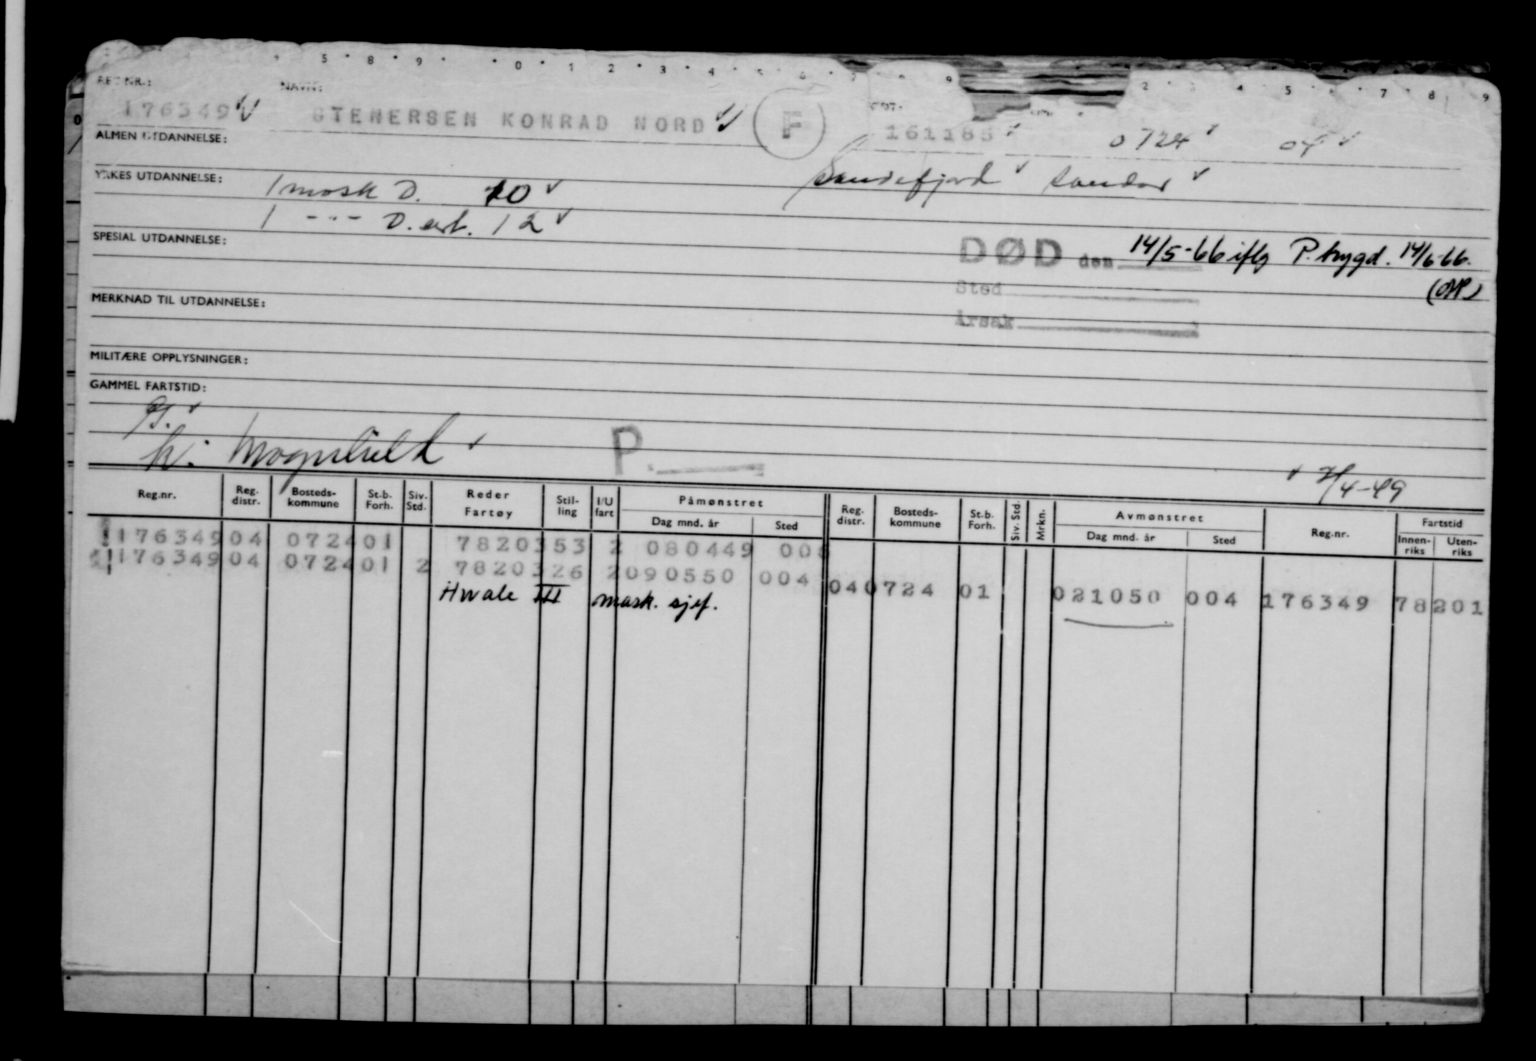 5 8 9 0 1 2 3 4 5 6 7 8 9 2 3 4 5 6 7 8 9
REG.NR.: NAVN:
176349 STENERSEN KONRAD NORD F 161185 0724 04
ALMEN UTDANNELSE:
Sandefjord Sandar
YRKES UTDANNELSE: 1 mask D. 10
1 --- D. sert. 12
SPESIAL UTDANNELSE:
DØD den 14/5-66 iflg P. trygd. 14/6-66.
Sted
Årsak
MERKNAD TIL UTDANNELSE:
MILITÆRE OPPLYSNINGER:
GAMMEL FARTSTID:
G.
h: Magnhild
P.
/4-49
Reg.nr. Reg. distr. Bosteds-kommune St.b. Forh. Siv. Std. Reder Fartøy Stil-ling I/U fart Påmønstret Dag mnd. år Sted Reg. distr. Bosteds-kommune St.b. Forh. Siv. Std. Mrkn. Avmønstret Dag mnd. år Sted Reg.nr. Fartstid Innen-riks Uten-riks
176349 04 0724 01 7820 353 2 080449 006
176349 04 0724 01 2 7820 326 2 090550 004 04 0724 01 021050 004 176349 78201
Hwale III mask. sjef.